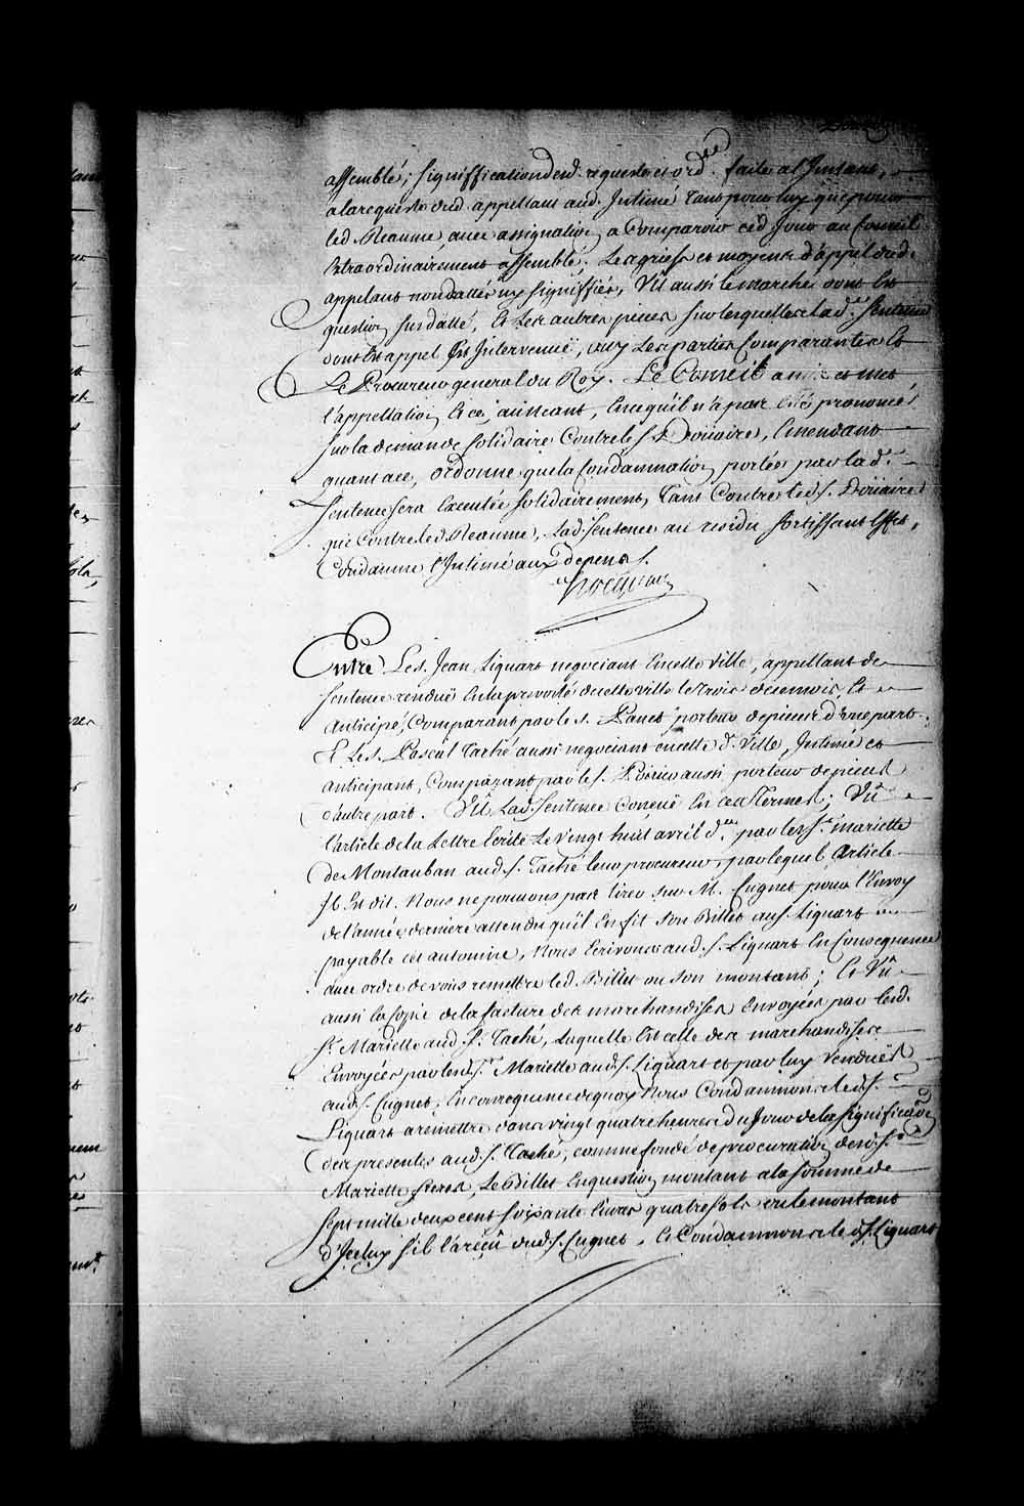 assemblé; signiffication desd. requeste et ord.ce faite a l'Instant,
a la requeste dud. appellant aud. Intimé tant pour luy que pour
led. Reaume, avec assignation a Comparoir ced. Jour au Conseil
Extraordinairement assemblé; Les griefs et moyens d'appel dud.
appelant non dattés ny signiffiés, Vû aussi le marché dont Est
question susdatté, Et Les autres pieces sur lesquelles lad.e Sentence
dont Est appel Est Intervenuë, ouy Les parties Comparantes Et
Le Procureur general du Roy. Le Conseil a mis et met
l'appellation Et ce, au neant, En ce qu'il n'a pas Eté prononcé
sur la demande solidaire Contre le s. Doüaire, Emendant
quant a ce, ordonne que la Condamnation portée par lad.e
Sentence sera Executée solidairement, tant Contre led. s. Doüaire
que Contre led. Reaume, Lad. Sentence au residu sortissant Effet,
Condamne l'Intimé aux depens /.
hocquart
Entre Le s. Jean Liquart negociant En cette Ville, appellant de
sentence renduë En la prevosté de cette ville le trois de ce mois, Et
anticipé, Comparant par le s. Panet porteur de pieces d'une part.
Et Le s. Pascal Taché aussi negociant en cette d.e Ville, Intimé et
anticipant, Comparant par le s. Poirier aussi porteur de pieces
d'autre part. Vû Lad. Sentence Conçuë En ces Termes; Vû
l'article de la Lettre Ecrite Le vingt huit avril d.er par les s.rs mariette
de Montauban aud. s. Taché leur procureur, par lequel article
Il Est dit. Nous ne pouvons pas tirer sur M. Cugnet pour l'Envoy
de l'année derniere attendu qu'il En fit son Billet au s. Liquart
payable cet automne, Nous Ecrivons aud. s. Liquart En Consequence
avec ordre de vous remettre led. Billet ou son montant; Et Vû
aussi la Copie de la facture des marchandises Envoyées par lesd.
s.rs Mariette aud. s. Taché, Laquelle Est celle des marchandises
Envoyées par lesd. s.rs Mariette aud. s. Liquart et par luy Venduës
aud. s. Cugnet, En consequence de quoy Nous Condamnons led. s.
Liquart a remettre dans vingt quatre heures du Jour de la signification
des presentes aud. s. Taché, comme fondé de procuration desd. s.rs
Mariette freres, Le Billet En question montant a la somme de
sept mille deux cent soixante livres quatre sols ou le montant
d'Iceluy s'il l'a reçû dud. s. Cugnet, Et Condamnons led. s. Liquart